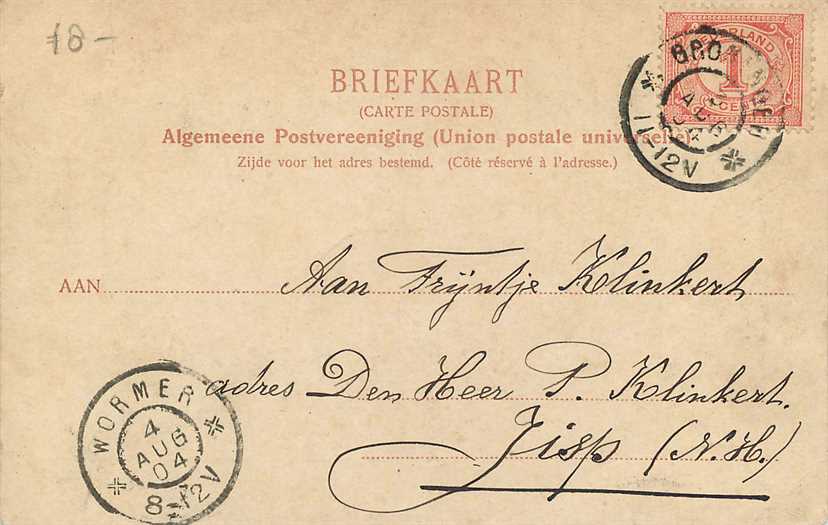 18-
BRIEFKAART
(CARTE POSTALE)
Algemeene Postvereeniging (Union postale universelle)
Zijde voor het adres bestemd. (Côté réservé à l'adresse.)
1
CENT
11-12V
AAN Aan Trijntje Klinkert
adres Den Heer P. Klinkert.
Jisp (N.H.)
WORMER
4
AUG
04
8-12V